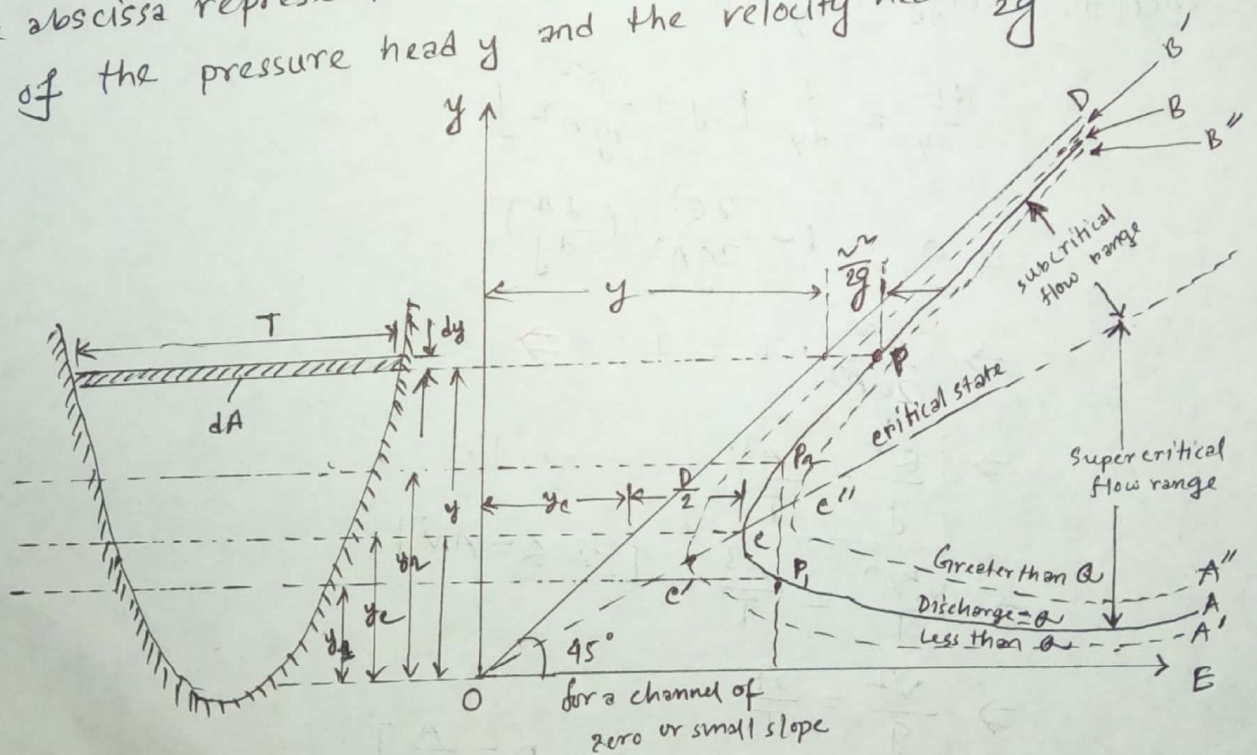 abscissa
of the pressure head y and the velocity 2g
y
D
B'
B
B"
subcritical
flow range
y
v²/2g
T
dy
dA
P
critical state
Supercritical
flow range
P2
yc
D/2
c"
c
c'
P1
y
y2
yc
y1
Greater than Q
A"
Discharge = Q
A
Less than Q
A'
45°
O
E
for a channel of
zero or small slope